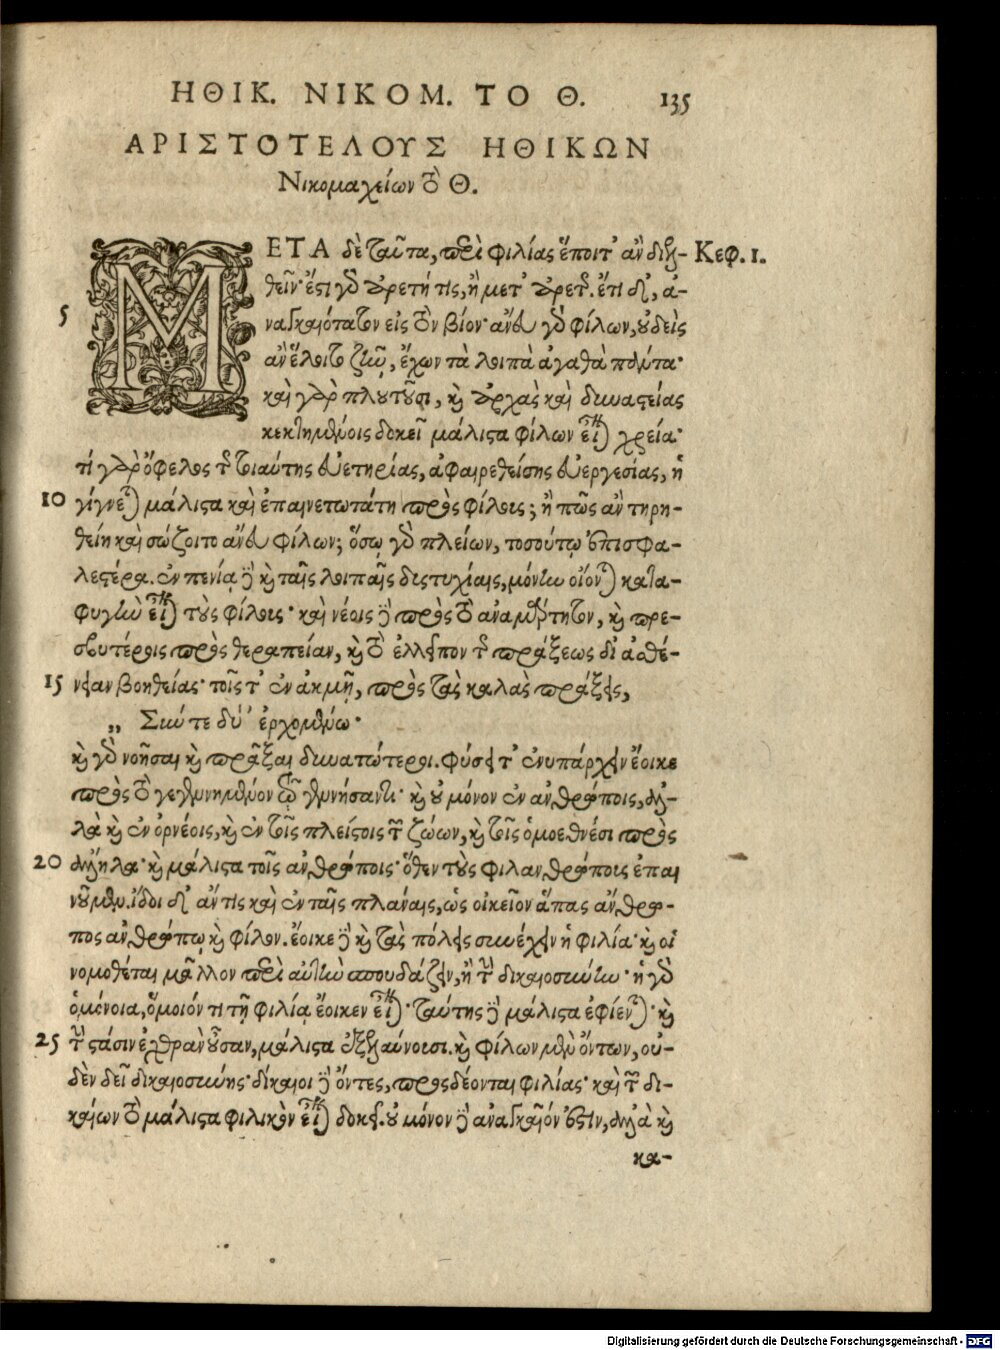 ΗΘΙΚ. ΝΙΚΟΜ. ΤΟ Θ. 135
ΑΡΙΣΤΟΤΕΛΟΥΣ ΗΘΙΚΩΝ
Νικομαχείων τὸ Θ.
ΜΕΤΑ δὲ ταῦτα, περὶ φιλίας ἕποιτ' ἂν διελ- Κεφ. 1.
θεῖν· ἔστι γὸ ἀρετή τις, ἢ μετ' ἀρετῆς. ἔτι δ', ἀ-
5 ναγκαιότατον εἰς τὸν βίον· ἄνευ γὸ φίλων, οὐδεὶς
ἂν ἕλοιτο ζῆν, ἔχων τὰ λοιπὰ ἀγαθὰ πάντα·
καὶ γὰρ πλουτοῦσι, καὶ ἀρχὰς καὶ δυναστείας
κεκτημένοις δοκεῖ μάλιστα φίλων εἶναι χρεία·
τί γὰρ ὄφελος τῆς τοιαύτης εὐετηρίας, ἀφαιρεθείσης εὐεργεσίας, ἣ
10 γίγνεται μάλιστα καὶ ἐπαινετωτάτη πρὸς φίλους; ἢ πῶς ἂν τηρη-
θείη καὶ σώζοιτο ἄνευ φίλων; ὅσῳ γὸ πλείων, τοσούτῳ ἐπισφα-
λεστέρα. ἐν πενίᾳ δὲ καὶ ταῖς λοιπαῖς δυστυχίαις, μόνην οἴονται κατα-
φυγὴν εἶναι τοὺς φίλους· καὶ νέοις δὲ πρὸς τὸ ἀναμάρτητον, καὶ πρε-
σβυτέροις πρὸς θεραπείαν, καὶ τὸ ἐλλεῖπον τῆς πράξεως δι' ἀσθέ-
15 νειαν βοηθείας· τοῖς τ' ἐν ἀκμῇ, πρὸς τὰς καλὰς πράξεις,
„ Σιώ τε δύ' ἐρχομένω·
καὶ γὸ νοῆσαι καὶ πρᾶξαι δυνατώτεροι. φύσει τ' ἐνυπάρχειν ἔοικε
πρὸς τὸ γεγεννημένον τῷ γεννήσαντι· καὶ οὐ μόνον ἐν ἀνθρώποις, ἀλ-
λὰ καὶ ἐν ὀρνέοις, καὶ ἐν τοῖς πλείστοις τῶν ζώων, καὶ τοῖς ὁμοεθνέσι πρὸς
20 ἄλληλα· καὶ μάλιστα τοῖς ἀνθρώποις· ὅθεν τοὺς φιλανθρώπους ἐπαι
νοῦμεν. ἴδοι δ' ἄν τις καὶ ἐν ταῖς πλάναις, ὡς οἰκεῖον ἅπας ἄνθρω-
πος ἀνθρώπῳ καὶ φίλον. ἔοικε δὲ καὶ τὰς πόλεις συνέχειν ἡ φιλία· καὶ οἱ
νομοθέται μᾶλλον περὶ αὐτὴν σπουδάζειν, ἢ τὴν δικαιοσύνην· ἡ γὸ
ὁμόνοια, ὅμοιόν τι τῇ φιλίᾳ ἔοικεν εἶναι· ταύτης δὲ μάλιστα ἐφίενται· καὶ
25 τὴν στάσιν ἔχθραν οὖσαν, μάλιστα ἐξελαύνουσι. καὶ φίλων μὲν ὄντων, οὐ-
δὲν δεῖ δικαιοσύνης· δίκαιοι δὲ ὄντες, προσδέονται φιλίας· καὶ τῶν δι-
καίων τὸ μάλιστα φιλικὸν εἶναι δοκεῖ. οὐ μόνον δὲ ἀναγκαῖόν ἐστιν, ἀλλὰ καὶ
κα-
Digitalisierung gefördert durch die Deutsche Forschungsgemeinschaft - DFG